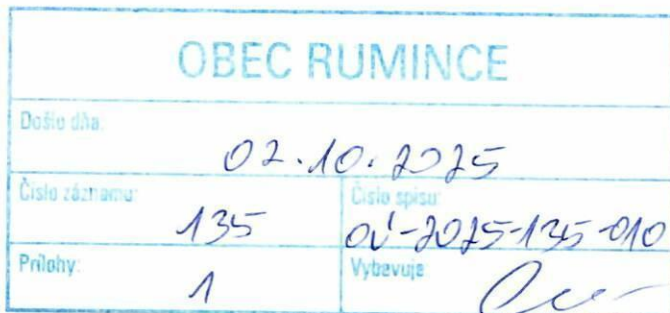 OBEC RUMINCE
Došlo dňa:
02.10.2025
Číslo záznamu:
135
Číslo spisu:
OÚ-2025-135-010
Prílohy:
1
Vybavuje: